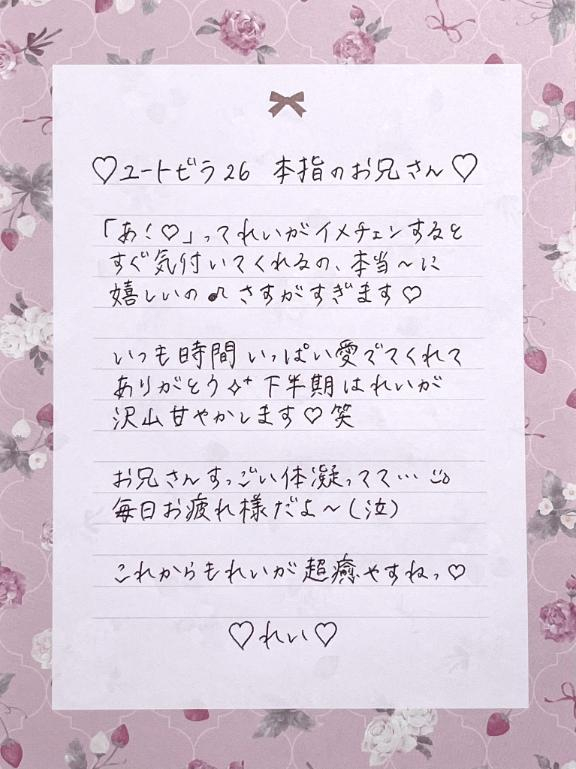 ♡ユートピラ26 本指のお兄さん♡
「あ!♡」ってれいがイメチェンすると
すぐ気付いてくれるの、本当〜に
嬉しいの♫さすがすぎます♡
いつも時間いっぱい愛でてくれて
ありがとう✧⁺下半期はれいが
沢山甘やかします♡笑
お兄さんすっごい体凝ってて…
毎日お疲れ様だよ〜(泣)
これからもれいが超癒やすねっ♡
♡れい♡